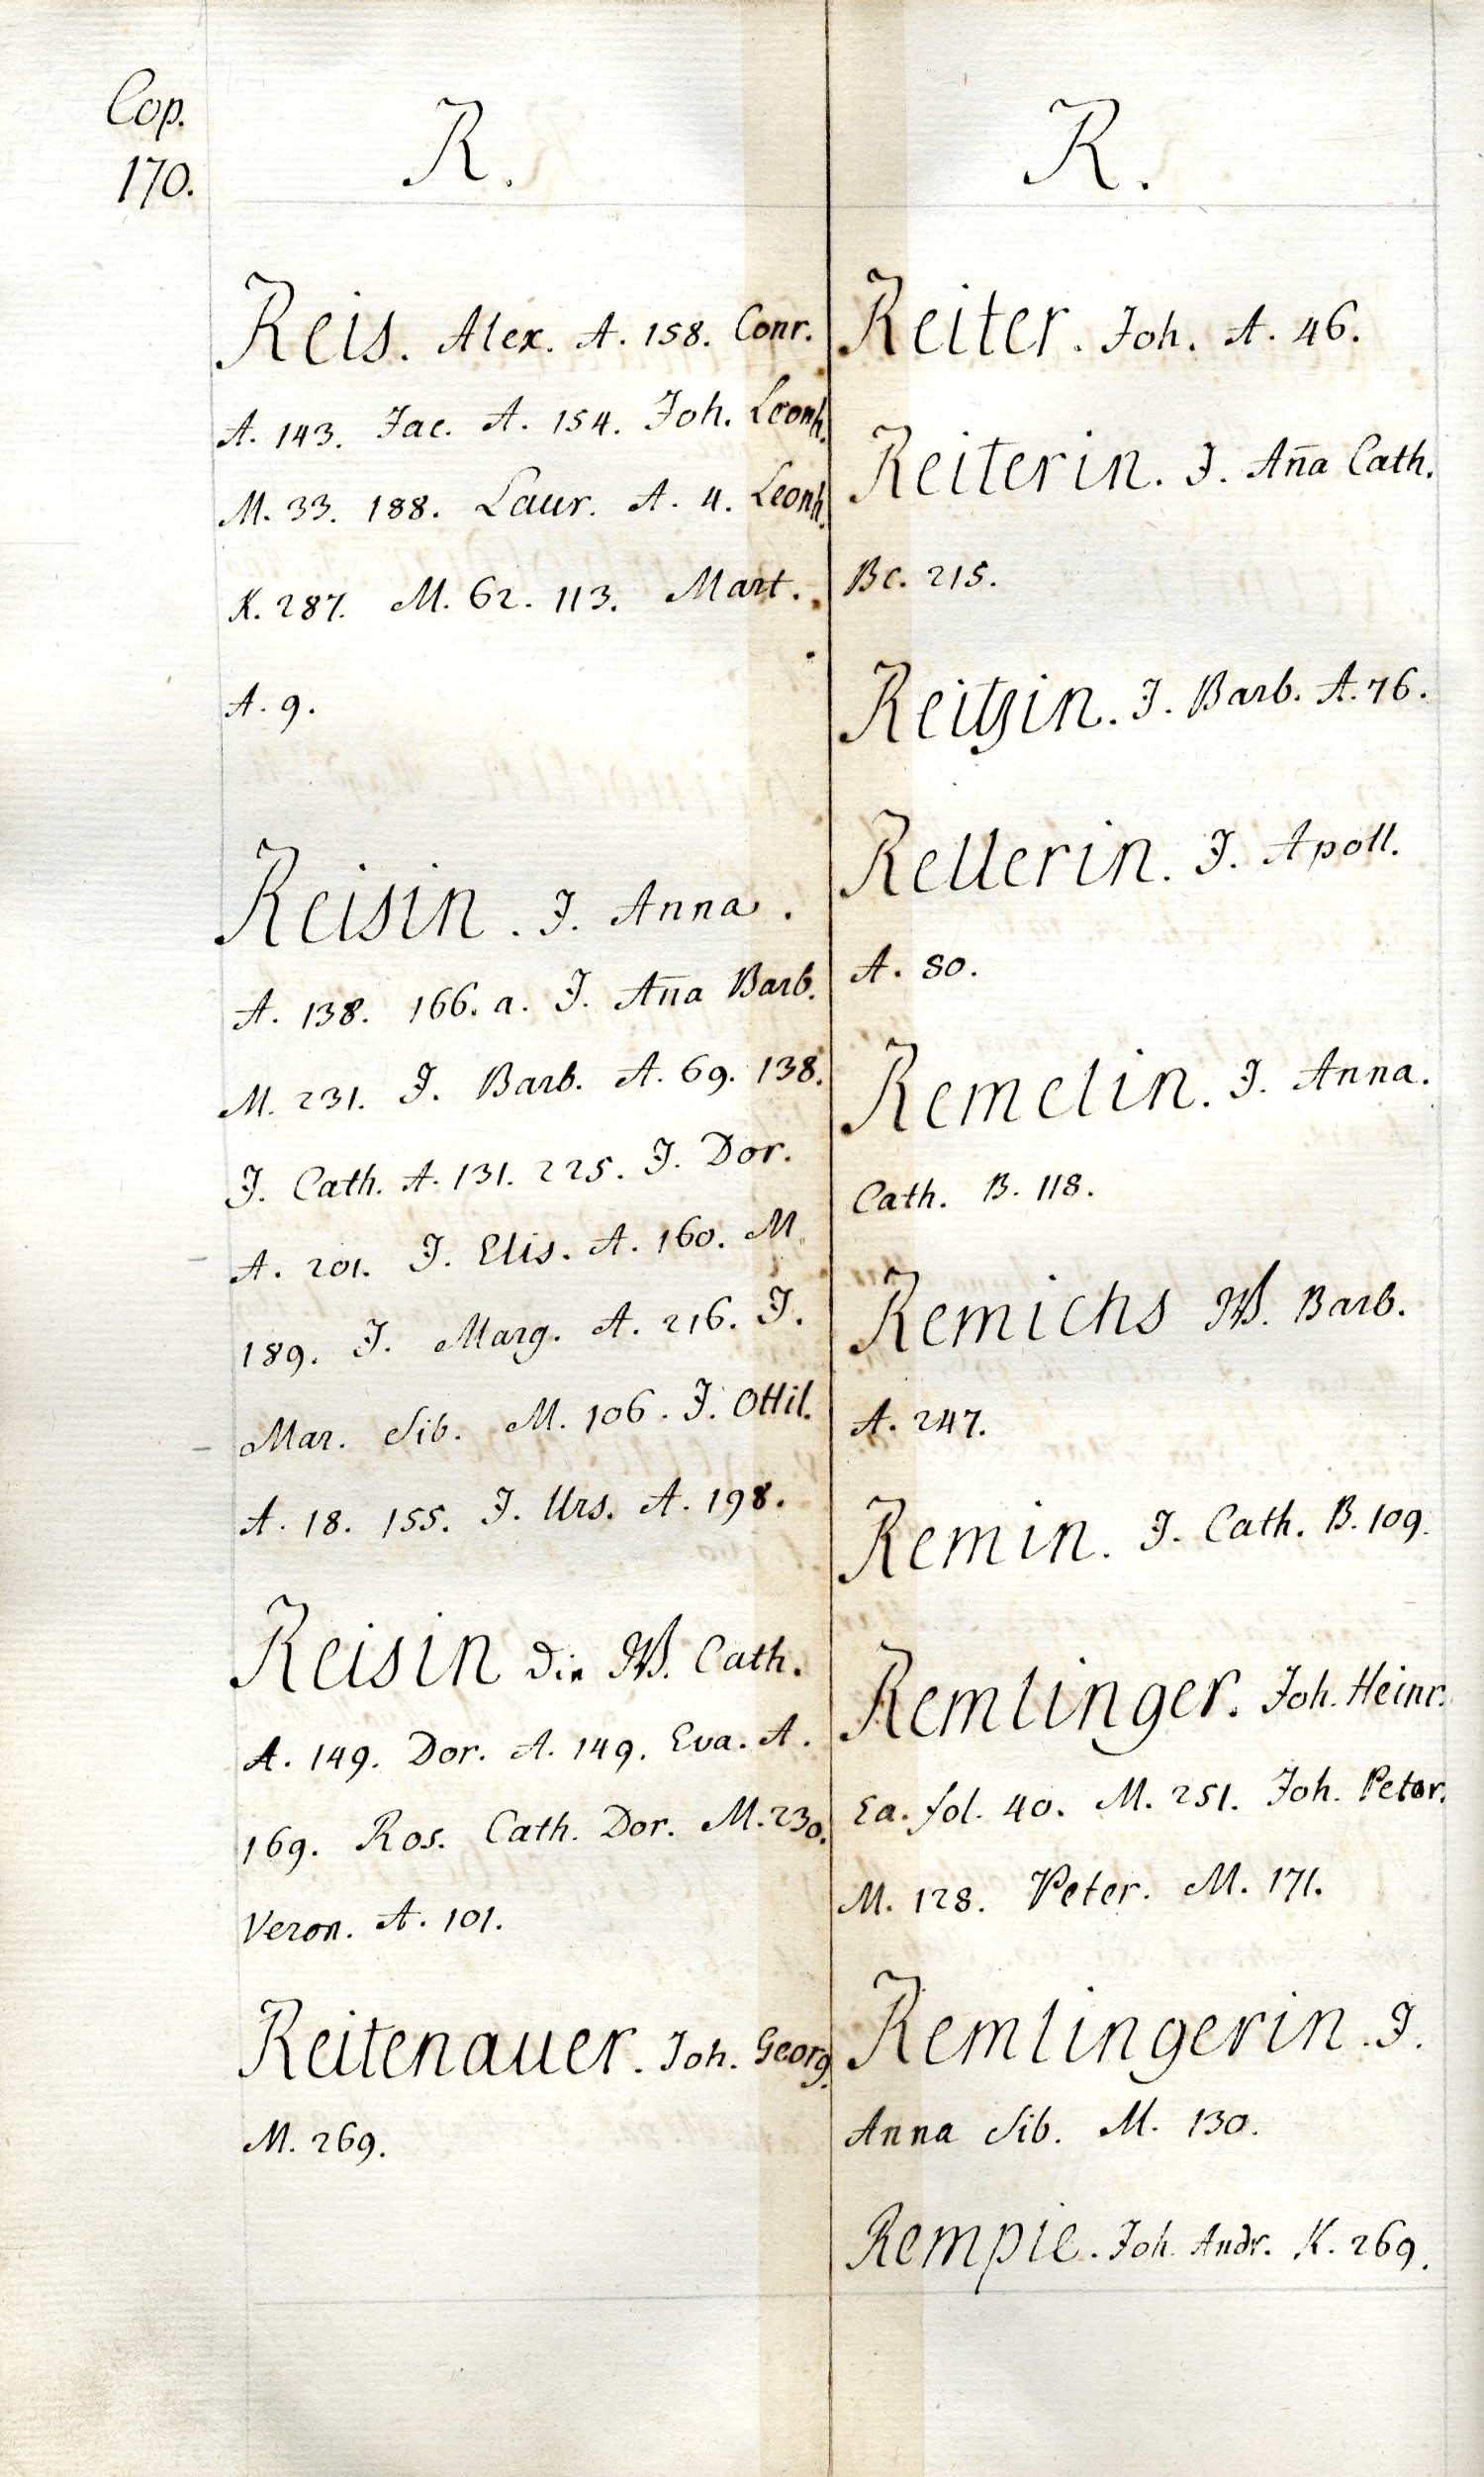 Cop.
170.
R.
Reis. Alex. A. 158. Conr.
A. 143. Jac. A. 154. Joh. Leonh.
M. 33. 188. Laur. A. 4. Leonh.
K. 287. M. 62. 113. Mart.
A. 9.
Reisin. J. Anna.
A. 138. 166. a. J. Aña Barb.
M. 231. J. Barb. A. 69. 138.
J. Cath. A. 131. 225. J. Dor.
A. 201. J. Elis. A. 160. M.
189. J. Marg. A. 216. J.
Mar. Sib. M. 106. J. Ottil.
A. 18. 155. J. Urs. A. 198.
Reisin die W. Cath.
A. 149. Dor. A. 149. Eva. A.
169. Ros. Cath. Dor. M. 230.
Veron. A. 101.
Reitenauer. Joh. Georg.
M. 269.
R.
Reiter. Joh. A. 46.
Reiterin. J. Aña Cath.
Bc. 215.
Reitzin. J. Barb. A. 76.
Rellerin. J. Apoll.
A. 80.
Remelin. J. Anna.
Cath. B. 118.
Remichs W. Barb.
A. 247.
Remin. J. Cath. B. 109.
Remlinger. Joh. Heinr.
Ea. fol. 40. M. 251. Joh. Peter.
M. 128. Peter. M. 171.
Remlingerin. J.
Anna Sib. M. 130.
Rempie. Joh. Andr. K. 269.